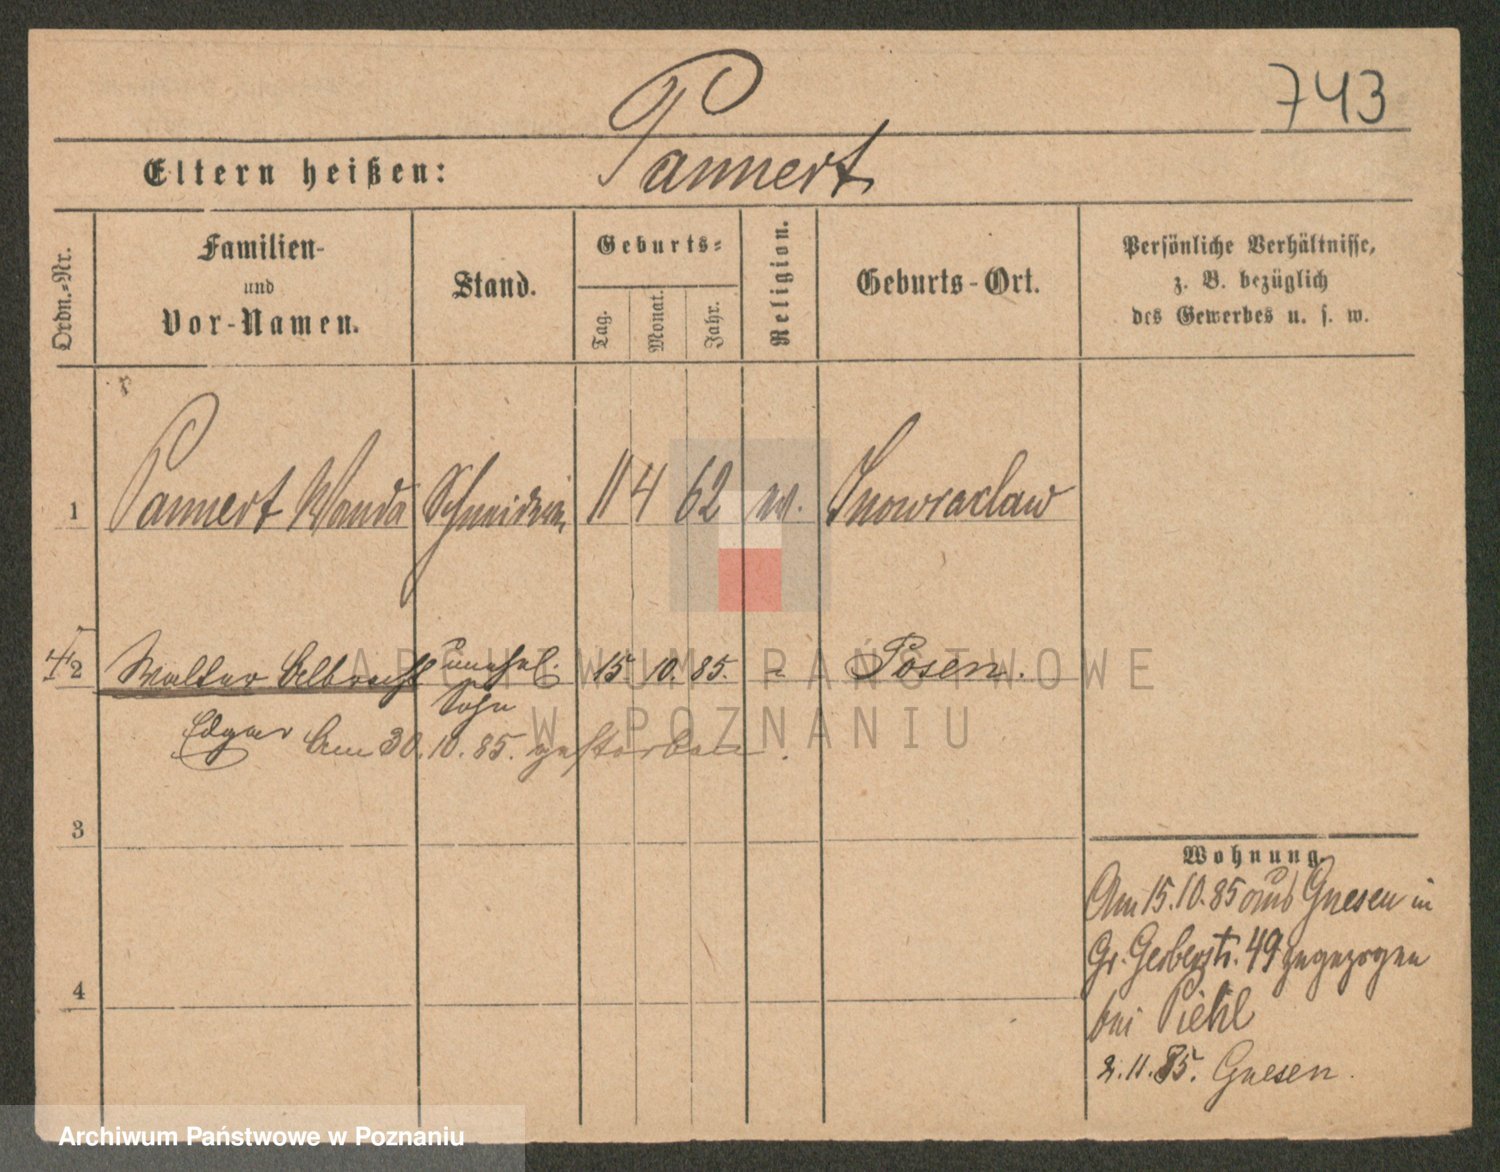 743
Pannert
Eltern heißen:
Ordn.-Nr.
Familien- und Vor-Namen.
Stand.
Geburts-
Tag.
Monat.
Jahr.
Religion.
Geburts-Ort.
Persönliche Verhältnisse,
z. B. bezüglich
des Gewerbes u. s. w.
1 Pannert Wanda Schneiderin 11 4 62 Inowraclaw
2 Walter Albrecht unehel. 15. 10. 85. - Posen.
Sohn
Edgar Am 30.10.85. gestorben.
3
4
Wohnung.
Am 15.10.85 aus Gnesen in
Gr. Gerberstr. 49 zugezogen
bei Piehl
2.11.85. Gnesen.
ARCHIWUM PAŃSTWOWE
W POZNANIU
Archiwum Państwowe w Poznaniu